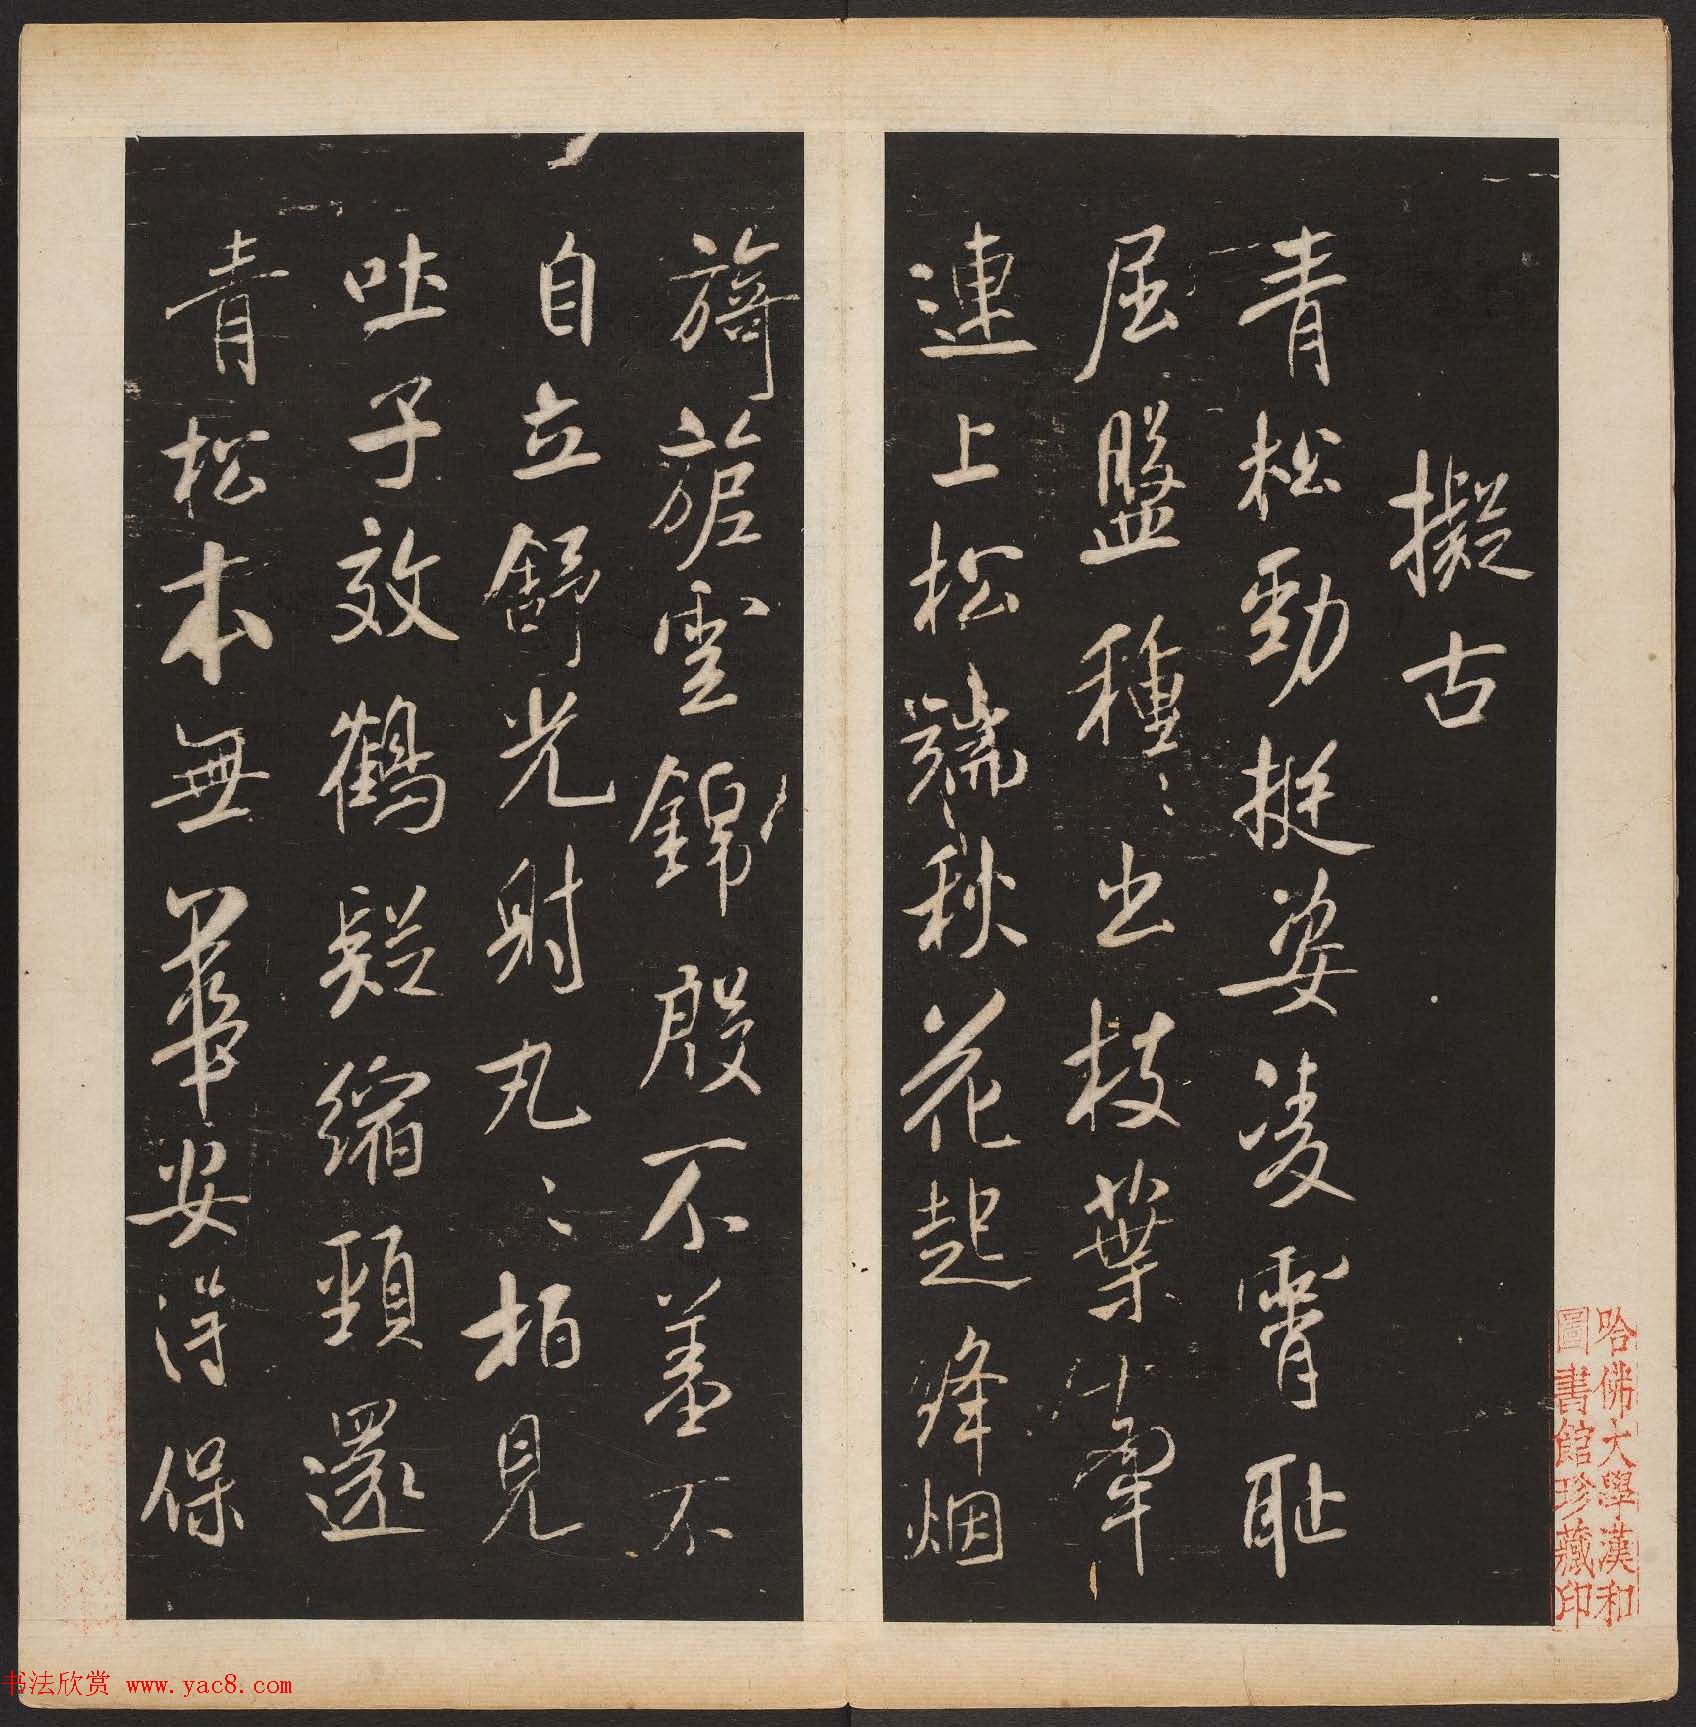 擬古
青松勁挺姿凌霄恥
屈盤種〻出枝葉牽
連上松端秋花起絳烟
旖旎雲錦殷不羞不
自立舒光射丸〻柏見
吐子效鶴疑縮頸還
青松本無華安得保
哈佛大學漢和
圖書館珍藏印
书法欣赏 www.yac8.com